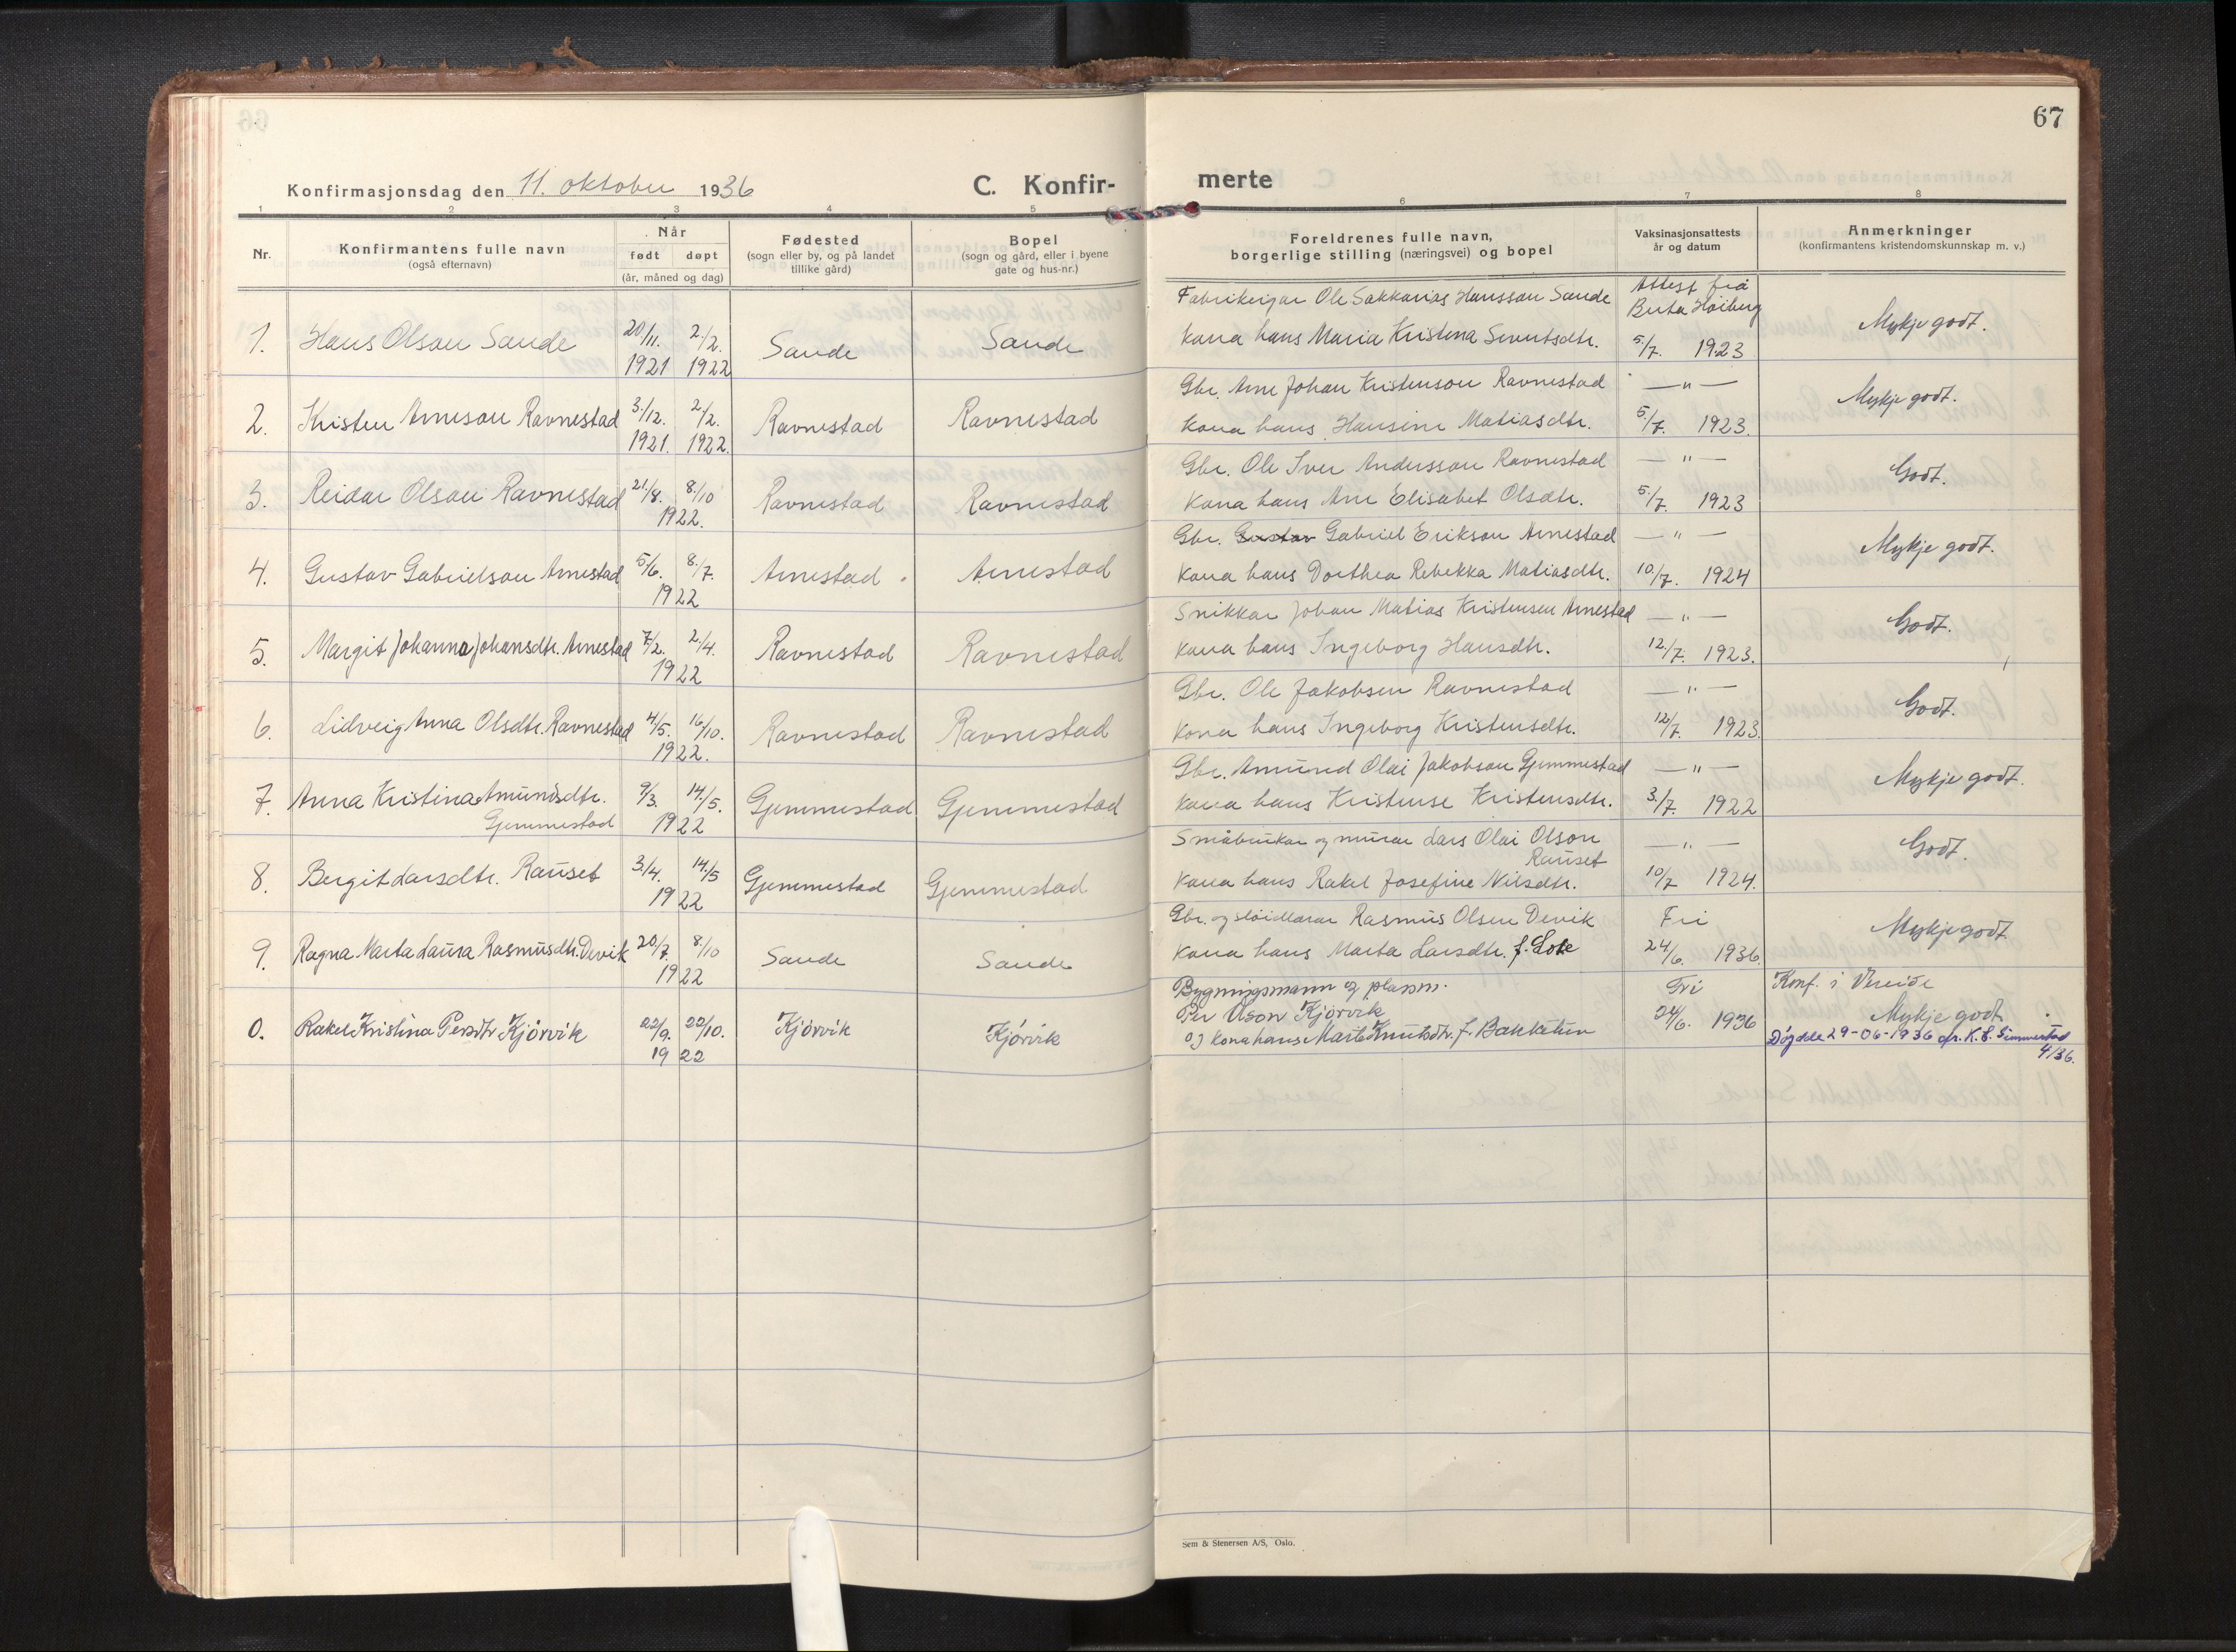 67
Konfirmasjonsdag den 11. oktober 1936
C. Konfir-
merte
1 2 3 4 5 6 7 8
Nr.
Konfirmantens fulle navn
(også efternavn)
Når
født døpt
(år, måned og dag)
Fødested
(sogn eller by, og på landet
tillike gård)
Bopel
(sogn og gård, eller i byene
gate og hus-nr.)
Foreldrenes fulle navn,
borgerlige stilling (næringsvei) og bopel
Vaksinasjonsattests
år og datum
Anmerkninger
(konfirmantens kristendomskunnskap m. v.)
1. Hans Olson Sande 20/11. 1921 2/2. 1922 Sande Sande
Fabrikeigar Ole Sakkarias Hansson Sande Attest frå Berta Høiberg
kona hans Maria Kristina Sivertsdtr. 5/7. 1923 Mykje godt.
2. Kristen Arneson Ravnestad 3./12. 1921. 2/2. 1922. Ravnestad Ravnestad
Gbr. Arne Johan Kristenson Ravnestad — " —
kona hans Hansine Matiasdtr. 5./7. 1923. Mykje godt.
3. Reidar Olson Ravnestad 21/8. 8/10 1922. Ravnestad Ravnestad
Gbr. Ole Iver Andersson Ravnestad — " —
kona hans Ane Elisabet Olsdtr. 5/7. 1923 Godt.
4. Gustav Gabrielson Arnestad 5/6. 8/7. 1922 Arnestad Arnestad
Gbr. Gustav Gabriel Erikson Arnestad — " —
kona hans Dorthea Rebekka Matiasdtr. 10/7. 1924 Mykje godt.
5. Margit Johanna Johansdtr. Arnestad 7/2. 2/4. 1922 Ravnestad Ravnestad
Snikkar Johan Matias Kristensen Arnestad — " —
kona hans Ingeborg Hansdtr. 12/7. 1923. Godt.
6. Lidveig Anna Olsdtr. Ravnestad 4/5. 16/10. 1922. Ravnestad Ravnestad
Gbr. Ole Jakobsen Ravnestad — " —
kona hans Ingeborg Kristensdtr. 12/7. 1923. Godt.
7. Anna Kristina Amundsdtr. Gjemmestad 9/3. 14/5. 1922 Gjemmestad Gjemmestad
Gbr. Amund Olai Jakobson Gjemmestad — " —
kona hans Kristense Kristensdtr. 3./7. 1922 Mykje godt.
8. Bergit Larsdtr. Rauset 3/4. 14/5 1922 Gjemmestad Gjemmestad
Småbrukar og murar Lars Olai Olson Rauset — " —
kona hans Rakel Josefine Nilsdtr. 10/7 1924. Godt.
9. Ragna Marta Laura Rasmusdtr. Devik 20/7. 8/10 1922 Sande Sande
Gbr. og sløidlærar Rasmus Olsen Devik Fri
kona hans Marta Larsdtr. f. Lote 24/6. 1936. Mykje godt
0. Rakel Kristina Persdtr Kjørvik 22/9. 22/10. 1922 Kjørvik Kjørvik
Bygningsmann og plassm. Fri Konf. i Vereide
Per Olson Kjørvik 24/6. 1936 Mykje godt.
og kona hans Marta Knutsdtr. f. Bakketun
29-06-1936 K. E.
4/36.
Sem & Stenersen A/S, Oslo.